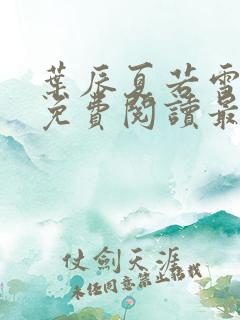 葉辰夏若雪
免費閱讀最
仗劍天涯
未经同意禁止转载